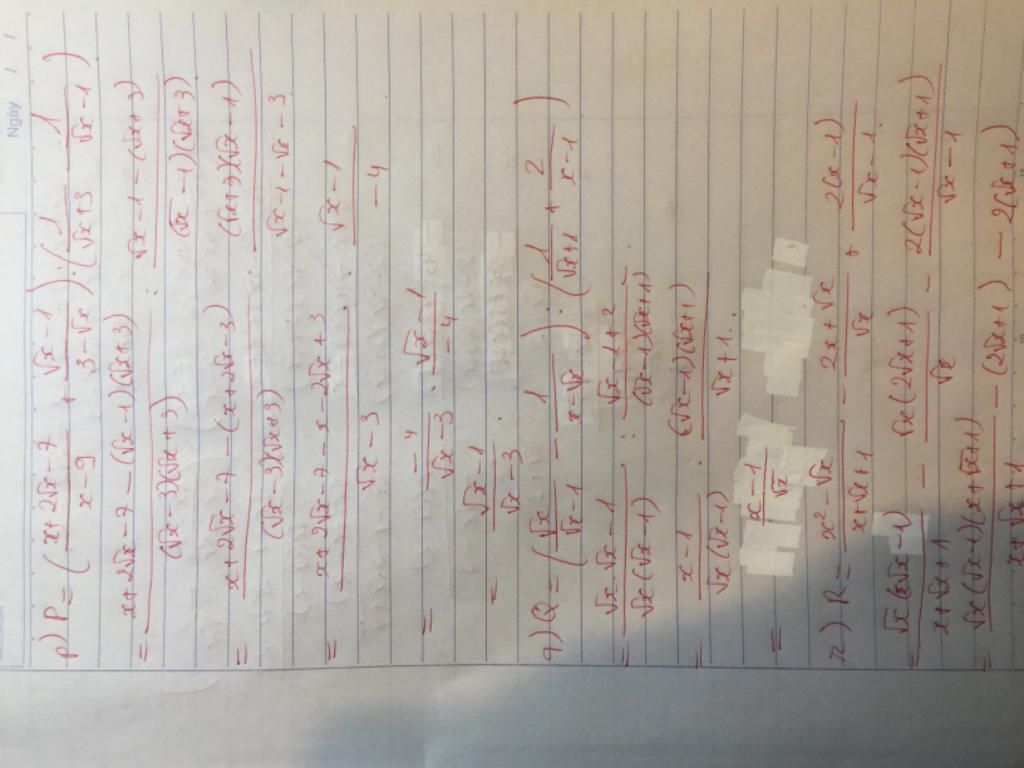 Ngày / /
p) P = (x+2√x-7 / x-9 + √x-1 / 3-√x) : (1 / √x+3 - 1 / √x-1)
= x+2√x-7-(√x-1)(√x+3) / (√x-3)(√x+3) : √x-1-(√x+3) / (√x-1)(√x+3)
= x+2√x-7-(x+2√x-3) / (√x-3)(√x+3) · (√x+3)(√x-1) / √x-1-√x-3
= x+2√x-7-x-2√x+3 / √x-3 · √x-1 / -4
= -4 / √x-3 · √x-1 / -4
= √x-1 / √x-3 .
q) Q = (√x / √x-1 - 1 / x-√x) : (1 / √x+1 + 2 / x-1)
= √x·√x-1 / √x(√x-1) : √x-1+2 / (√x-1)(√x+1)
= x-1 / √x(√x-1) · (√x-1)(√x+1) / √x+1
= x-1 / √x
r) R = x²-√x / x+√x+1 - 2x+√x / √x + 2(x-1) / √x-1
= √x( √x -1) / x+√x+1 - √x(2√x+1) / √x - 2(√x-1)(√x+1) / √x-1
= √x(√x-1)(x+√x+1) / x+√x+1 - (2√x+1) - 2(√x+1)